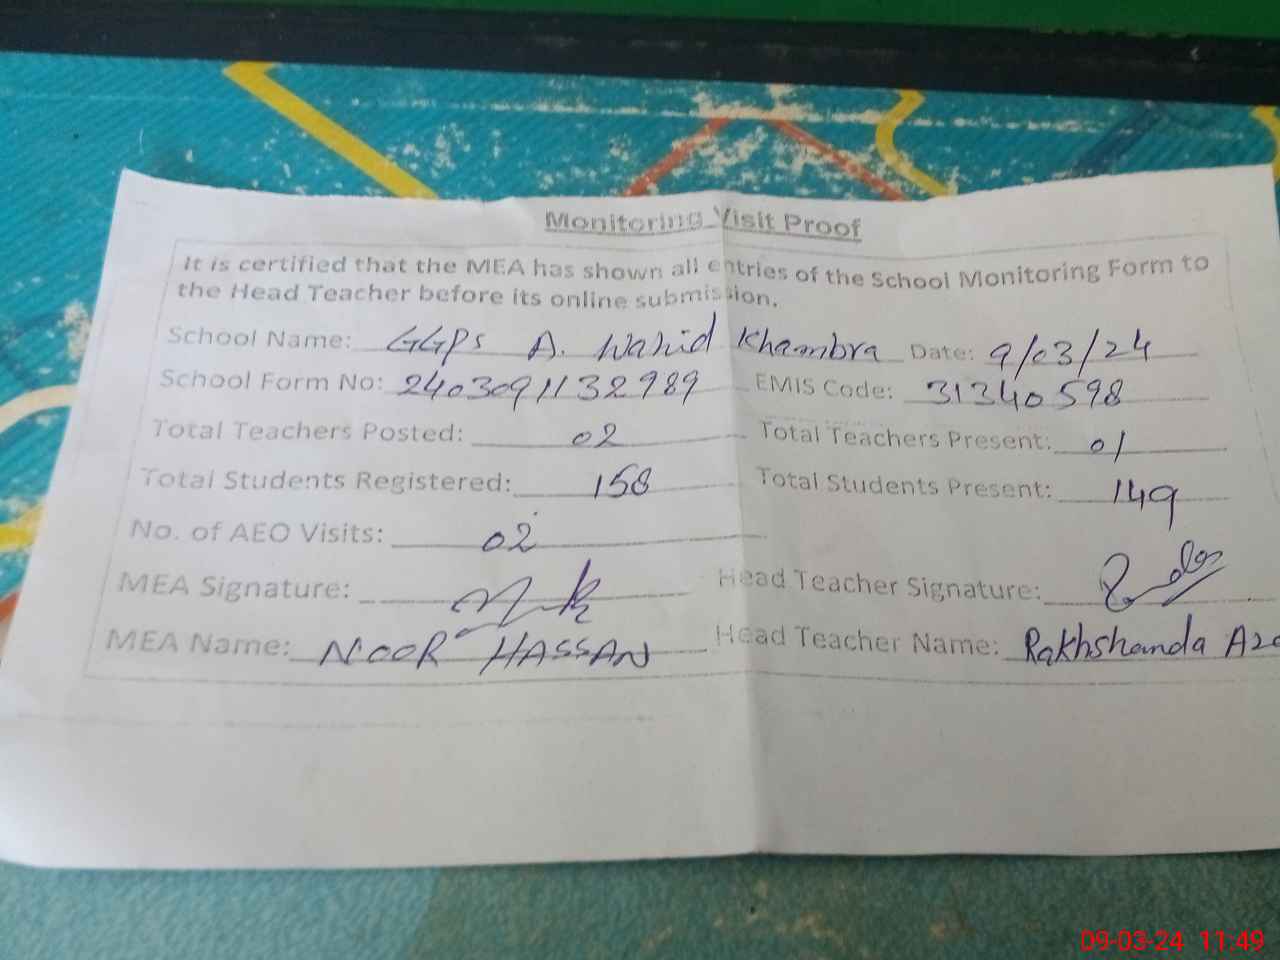 Monitoring Visit Proof
It is certified that the MEA has shown all entries of the School Monitoring Form to
the Head Teacher before its online submission.
School Name: GGPS A. Wahid Khambra Date: 9/03/24
School Form No: 2403091132989 EMIS Code: 31340598
Total Teachers Posted: 02 Total Teachers Present: 01
Total Students Registered: 158 Total Students Present: 149
No. of AEO Visits: 02
MEA Signature: Head Teacher Signature:
MEA Name: NOOR HASSAN Head Teacher Name: Rakhshanda
09-03-24 11:49